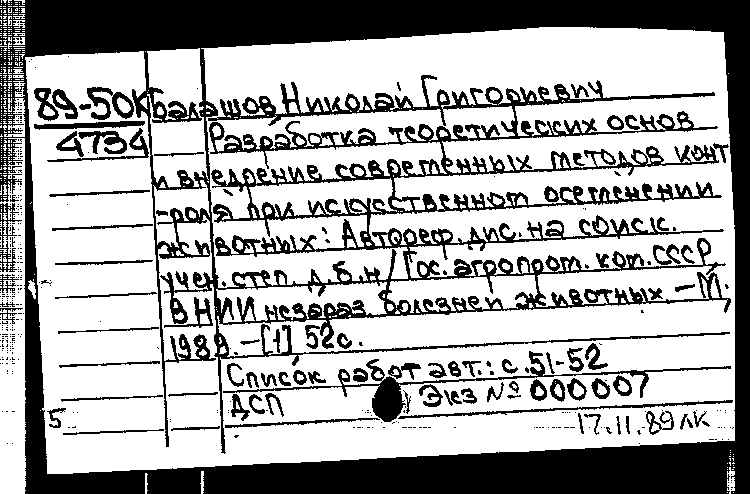 89-50К Балашов Николай Григориевич
4734 Разработка теоретических основ
и внедрение современных методов конт
-роля при искусственном осеменении
животных: Автореф. дис. на соиск.
учен. степ. д.б.н / Гос. агропром. ком. СССР,
ВНИИ незараз. болезней животных. – М.,
1989. – [1] 52 с.
Список работ авт.: с. 51-52
ДСП Экз № 000007
5
17.11.89 ЛК